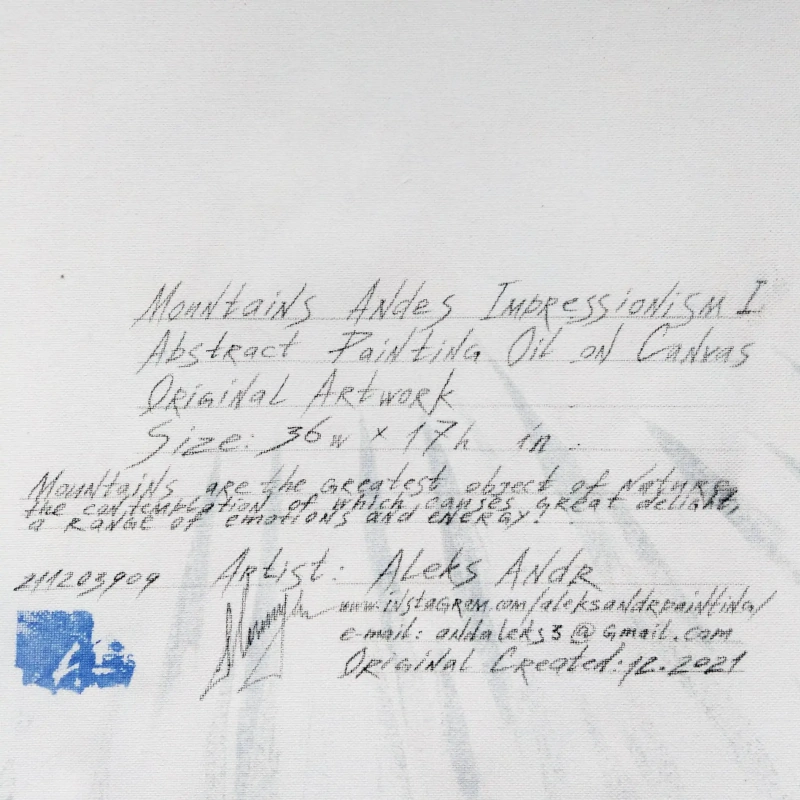 Mountains Andes Impressionism I
Abstract Painting Oil on Canvas
Original Artwork
Size: 36w x 17h in.
Mountains are the greatest object of Nature,
the contemplation of which causes great delight,
a range of emotions and energy!
211203909
Artist: Aleks Andr
www.instagrem.com/aleksandrpainting/
e-mail: andaleks3@gmail.com
Original Created: 12.2021